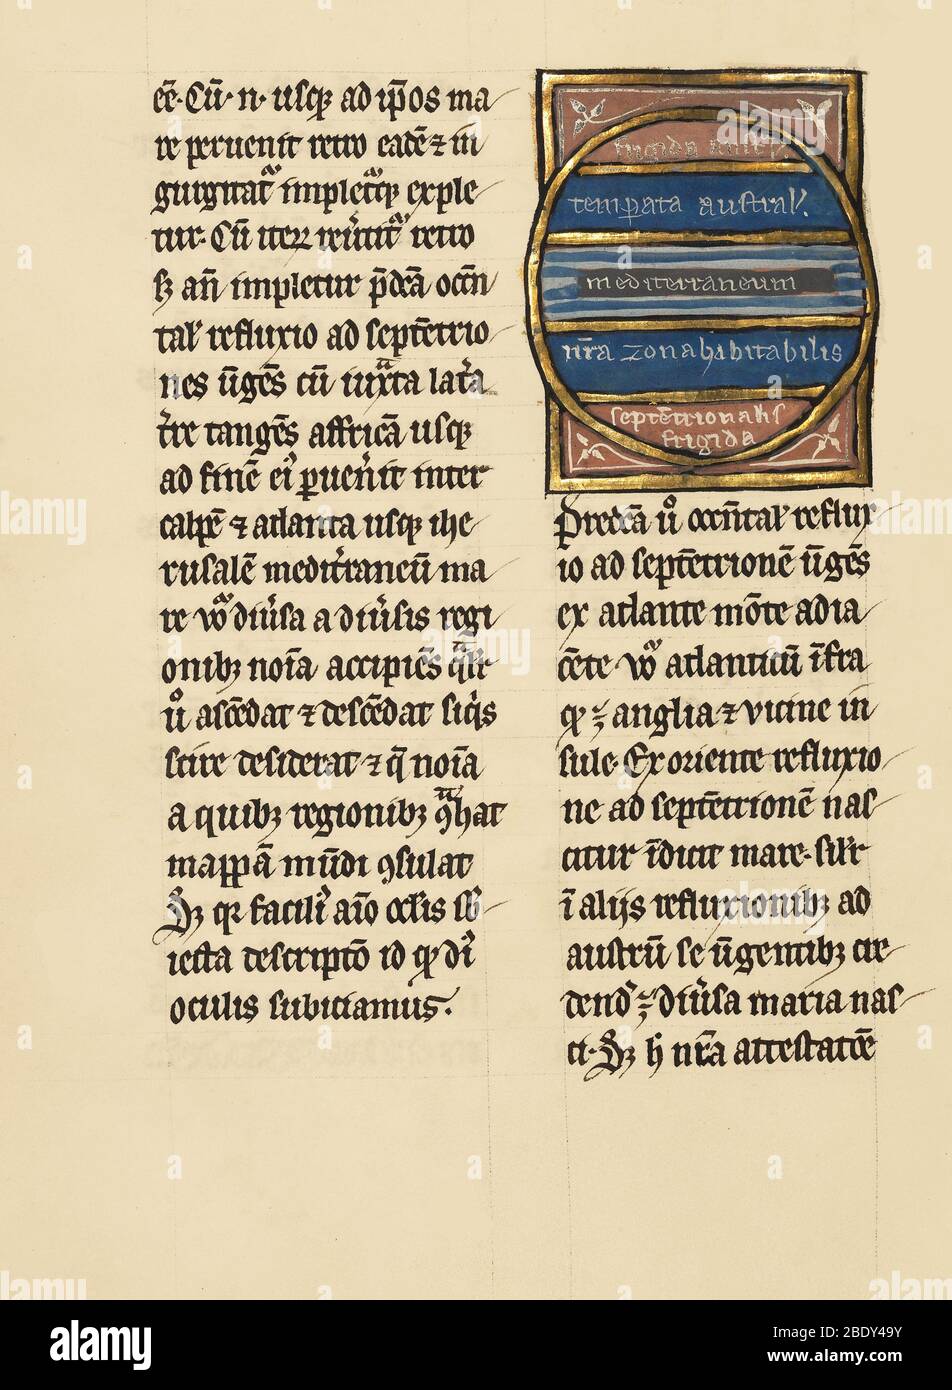 eē. Cū. n. usq; ad ip̄os ma
re peruenit retro eatē ⁊ in
gurgitat᷑ impletᷓq; exple
tur. Cū iteꝝ reūtit᷑ retro
sꝫ añ impletur p̄dc̄a occn̄
tal' refluxio ad septētrio
nes ūgēs cū iuxta lat'a
t're tangēs affricā usq;
ad finē ei' puen'it inter
calpē ⁊ atlanta usq; ihe
rusalē medit'raneū ma
re uo diu'sa a diu'sis regi
onibꝫ noīa accipiēs qr̄
ū ascēdat ⁊ descēdat siq's
scire desiderat ⁊ q̄ noīa
a quibꝫ regionibꝫ ꝯt'hat
mappā mūdi ꝯsulat
Sꝫ qr facili' aīo oclīs sb
iecta descriptō id qd di'
oculis subiciamus.
frigida aust'.
temꝑata austral'.
mediterraneum
nr̄a zona habitabilis
septētrionalis
frigida
Predc̄a ū occn̄tal' reflux
io ad septētrionē ūgēs
ex atlante mōte adia
cēte uo atlanticū īfra
qd ꝫ anglia ⁊ uicine in
sule. Ex oriente refluxio
ne ad septētrionē nas
citur īdicū mare. sil'r
ī alijs refluxionibꝫ ad
austrū se ūgentibꝫ cre
dend' ꝫ diu'sa maria nas
ci. Sꝫ h nr̄a attestatōe
alamy
Image ID: 2BDY49Y
www.alamy.com